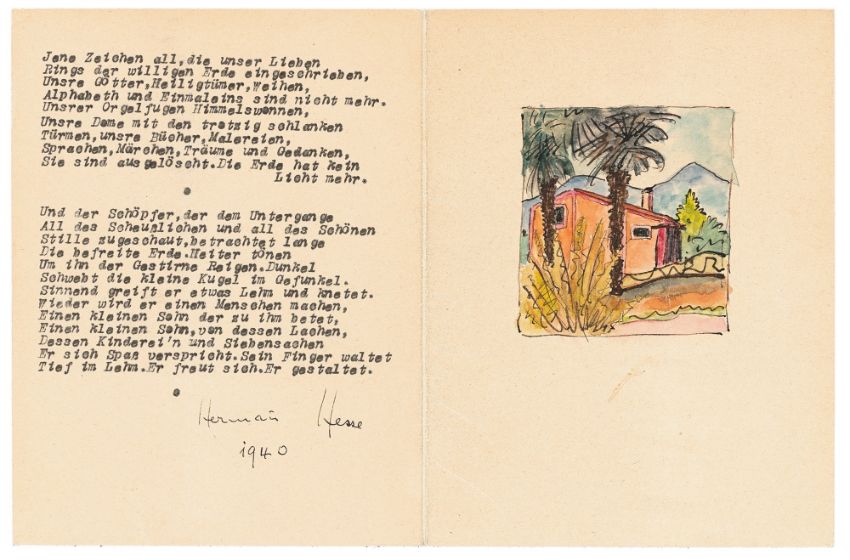 Jene Zeichen all,die unser Lieben
Rings der willigen Erde eingeschrieben,
Unsre Götter,Heiligtümer,Weihen,
Alphabeth und Einmaleins sind nicht mehr.
Unsrer Orgelfugen Himmelswonnen,
Unsre Dome mit den trotzig schlanken
Türmen,unsre Bücher,Malereien,
Sprachen,Märchen,Träume und Gedanken,
Sie sind ausgelöscht.Die Erde hat kein
Licht mehr.
Und der Schöpfer,der dem Untergange
All des Scheußlichen und all des Schönen
Stille zugeschaut,betrachtet lange
Die befreite Erde.Heiter tönen
Um ihn der Gestirne Reigen.Dunkel
Schwebt die kleine Kugel im Gefunkel.
Sinnend greift er etwas Lehm und knetet.
Wieder wird er einen Menschen machen,
Einen kleinen Sohn der zu ihm betet,
Einen kleinen Sohn,von dessen Lachen,
Dessen Kinderei'n und Siebensachen
Er sich Spaß verspricht.Sein Finger waltet
Tief im Lehm.Er freut sich.Er gestaltet.
Hermann Hesse
1940